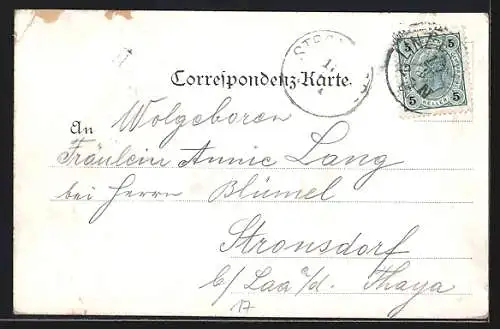 Correspondenz-Karte.
An Wolgeboren
Fräulein Annie Lang
bei Herrn Blümel
Stronsdorf
b/ Laa a/d. Thaya
17
5 5
5 5
HELLER